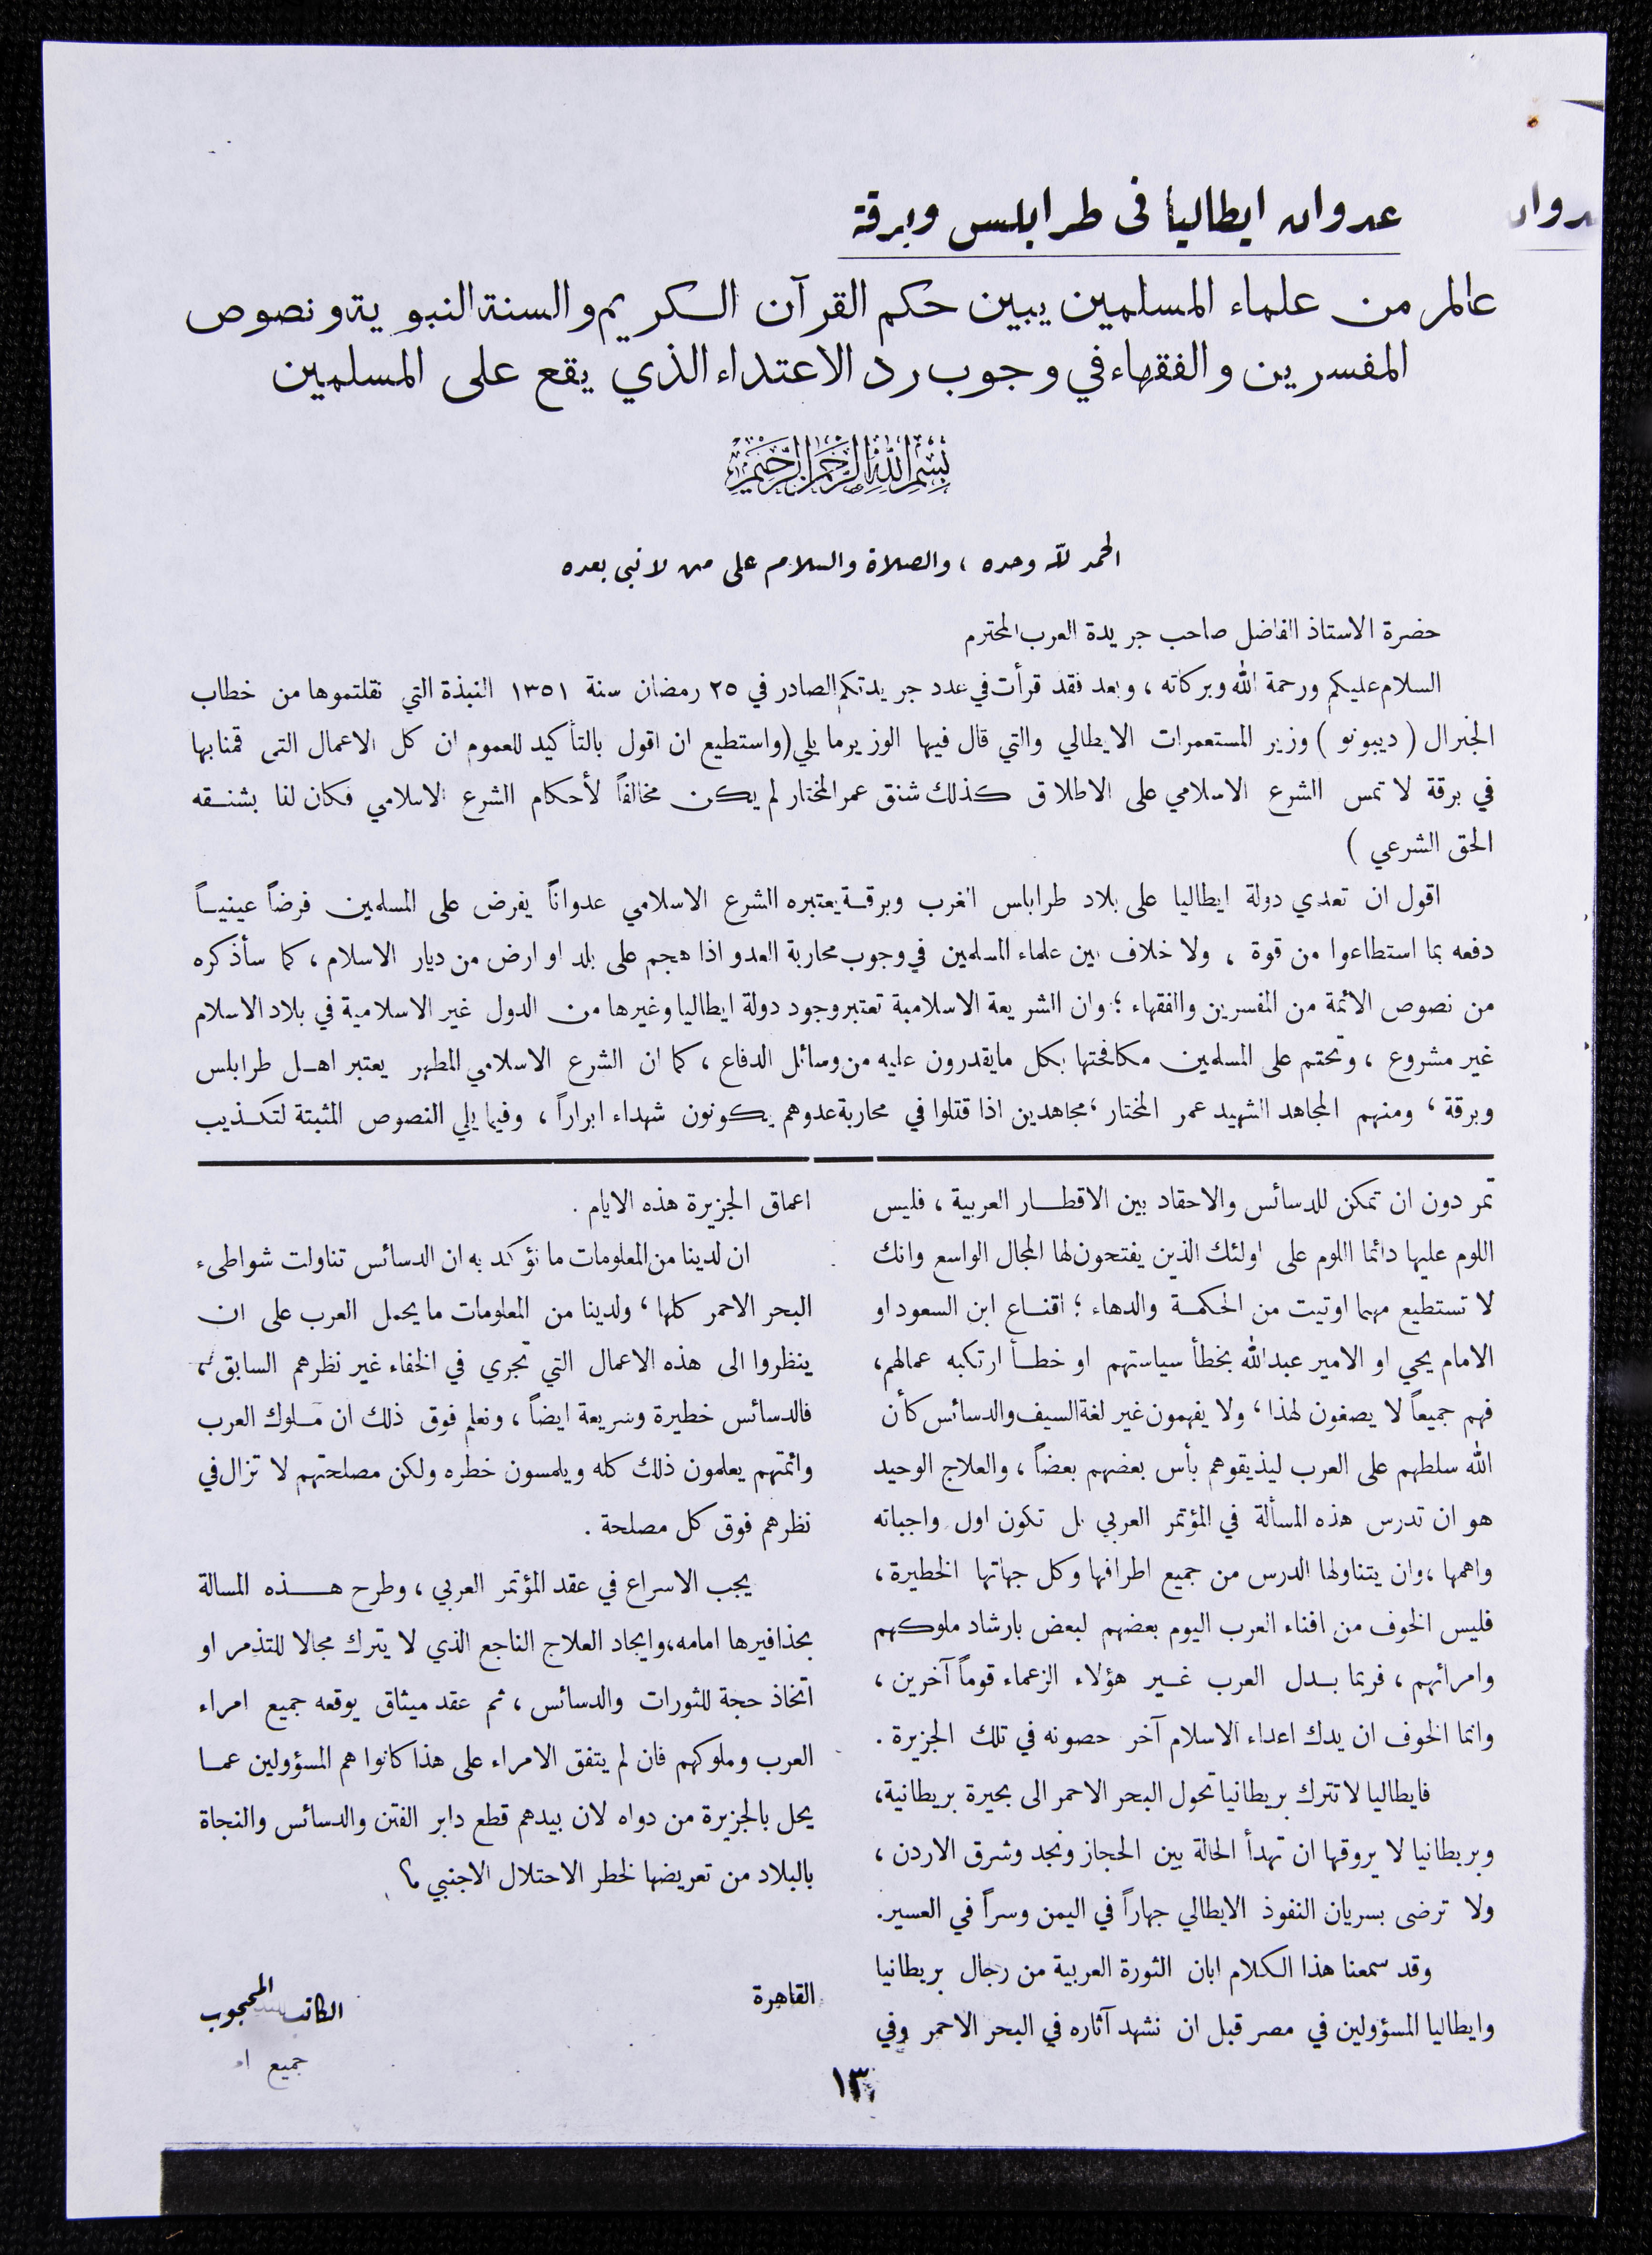 عدوان ايطاليا فى طرابلس وبرقة
عدوان
عالم من علماء المسلمين يبين حكم القرآن الكريم والسنة النبوية ونصوص
المفسرين والفقهاء في وجوب رد الاعتداء الذي يقع على المسلمين
بسم الله الرحمن الرحيم
الحمد لله وحده ، والصلاة والسلام على من لا نبي بعده
حضرة الاستاذ الفاضل صاحب جريدة العرب المحترم
السلام عليكم ورحمة الله وبركاته ، وبعد فقد قرأت في عدد جريدتكم الصادر في ٢٥ رمضان سنة ١٣٥١ النبذة التي نقلتموها من خطاب
الجنرال ( ديبونو ) وزير المستعمرات الايطالي والتي قال فيها الوزير ما يلي (واستطيع ان اقول بالتأكيد للعموم ان كل الاعمال التى قمنا بها
في برقة لا تمس الشرع الاسلامي على الاطلاق كذلك شنق عمر المختار لم يكن مخالفاً لأحكام الشرع الاسلامي فكان لنا بشنقه
الحق الشرعي )
اقول ان تعدي دولة ايطاليا على بلاد طرابلس الغرب وبرقة يعتبره الشرع الاسلامي عدواناً يفرض على المسلمين فرضاً عينياً
دفعه بما استطاعوا من قوة ، ولا خلاف بين علماء المسلمين في وجوب محاربة العدو اذا هجم على بلد او ارض من ديار الاسلام ، كما سأذكره
من نصوص الائمة من المفسرين والفقهاء ؛ وان الشريعة الاسلامية تعتبر وجود دولة ايطاليا وغيرها من الدول غير الاسلامية في بلاد الاسلام
غير مشروع ، وتحتم على المسلمين مكافحتها بكل ما يقدرون عليه من وسائل الدفاع ، كما ان الشرع الاسلامي المطهر يعتبر اهل طرابلس
وبرقة ، ومنهم المجاهد الشهيد عمر المختار ، مجاهدين اذا قتلوا في محاربة عدوهم يكونون شهداء ابراراً ، وفيما يلي النصوص المثبتة لتكذيب
تمر دون ان تمكن للدسائس والاحقاد بين الاقطار العربية ، فليس
اللوم عليها دائما اللوم على اولئك الذين يفتحون لها المجال الواسع وانك
لا تستطيع مهما اوتيت من الحكمة والدهاء ؛ اقناع ابن السعود او
الامام يحي او الامير عبدالله بخطأ سياستهم او خطأ ارتكبه عمالهم ،
فهم جميعاً لا يصغون لهذا ، ولا يفهمون غير لغة السيف والدسائس كأن
الله سلطهم على العرب ليذيقوهم بأس بعضهم بعضاً ، والعلاج الوحيد
هو ان تدرس هذه المسألة في المؤتمر العربي بل تكون اول واجباته
واهمها ، وان يتناولها الدرس من جميع اطرافها وكل جهاتها الخطيرة ،
فليس الخوف من افناء العرب اليوم بعضهم لبعض بارشاد ملوكهم
وامرائهم ، فربما بدل العرب غير هؤلاء الزعماء قوماً آخرين ،
وانما الخوف ان يدك اعداء الاسلام آخر حصونه في تلك الجزيرة .
فايطاليا لا تترك بريطانيا تحول البحر الاحمر الى بحيرة بريطانية ،
وبريطانيا لا يروقها ان تهدأ الحالة بين الحجاز ونجد وشرق الاردن ،
ولا ترضى بسريان النفوذ الايطالي جهاراً في اليمن وسراً في العسير .
وقد سمعنا هذا الكلام ابان الثورة العربية من رجال بريطانيا
وايطاليا المسؤولين في مصر قبل ان نشهد آثاره في البحر الاحمر وفي
اعماق الجزيرة هذه الايام .
ان لدينا من المعلومات ما نؤكد به ان الدسائس تناولت شواطىء
البحر الاحمر كلها ، ولدينا من المعلومات ما يحمل العرب على ان
ينظروا الى هذه الاعمال التي تجري في الخفاء غير نظرهم السابق ،
فالدسائس خطيرة وسريعة ايضاً ، ونعلم فوق ذلك ان ملوك العرب
وائمتهم يعلمون ذلك كله ويلمسون خطره ولكن مصلحتهم لا تزال في
نظرهم فوق كل مصلحة .
يجب الاسراع في عقد المؤتمر العربي ، وطرح هذه المسالة
بحذافيرها امامه ، وايجاد العلاج الناجع الذي لا يترك مجالا للتذمر او
اتخاذ حجة للثورات والدسائس ، ثم عقد ميثاق يوقعه جميع امراء
العرب وملوكهم فان لم يتفق الامراء على هذا كانوا هم المسؤولين عما
يحل بالجزيرة من دواه لان بيدهم قطع دابر الفتن والدسائس والنجاة
بالبلاد من تعريضها لخطر الاحتلال الاجنبي ؟
القاهرة
الكاتب المحجوب
جميع ا
١٣